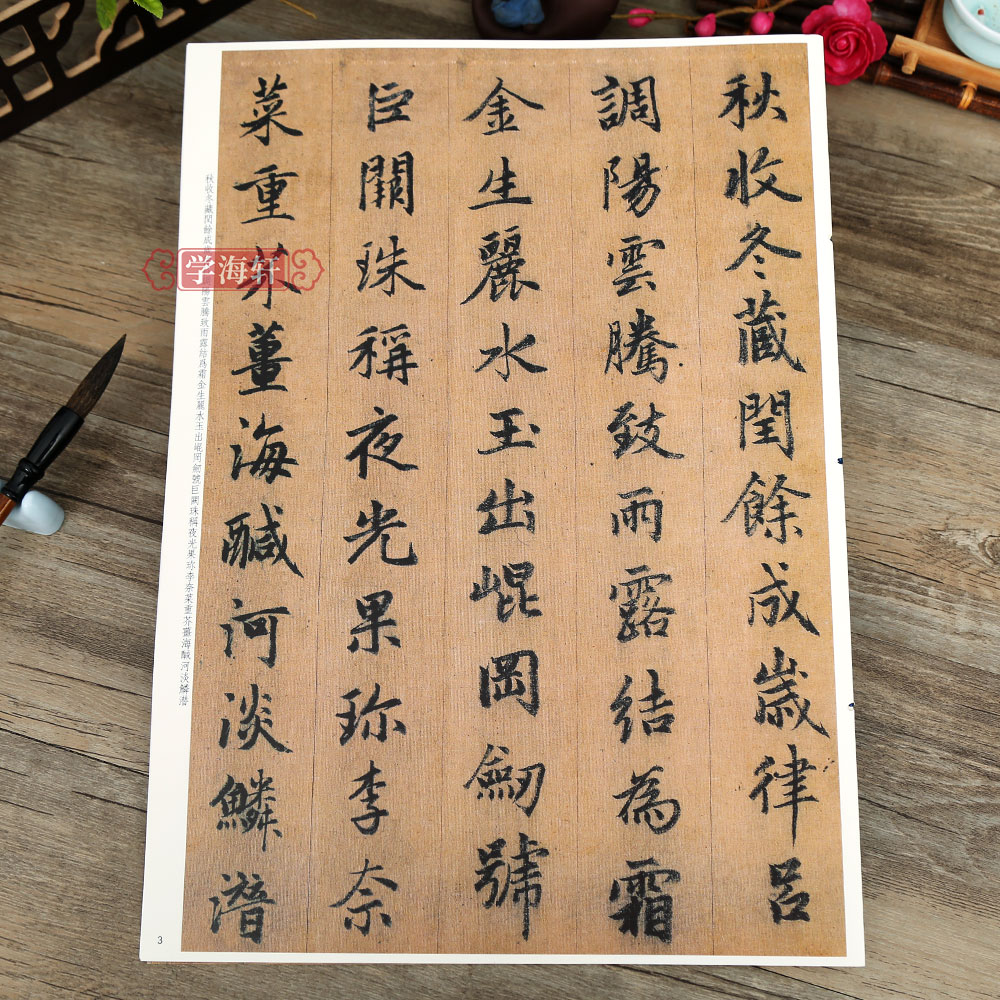 秋收冬藏閏餘成歲律呂
調陽雲騰致雨露結為霜
金生麗水玉出崐岡劒號
巨闕珠稱夜光果珎李奈
菜重芥薑海鹹河淡鱗潛
秋收冬藏閏餘成
雲騰致雨露結爲霜金生麗水玉出崐岡劒號巨闕珠稱夜光果珎李奈菜重芥薑海鹹河淡鱗潜
学海轩
3